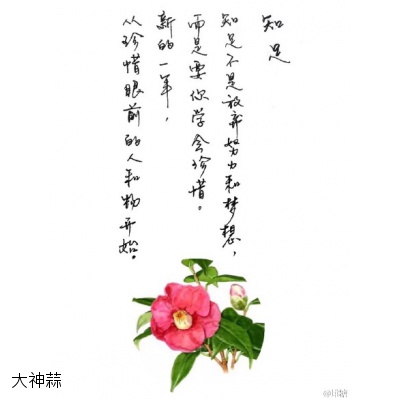 知足
知足不是放弃努力和梦想，
而是要你学会珍惜。
新的一年，
从珍惜眼前的人和物开始。
大神蒜